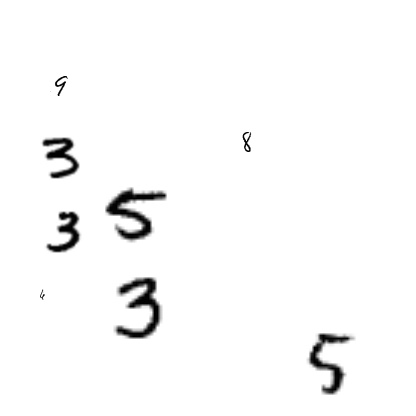 9
8
3
3 5
4
3
5